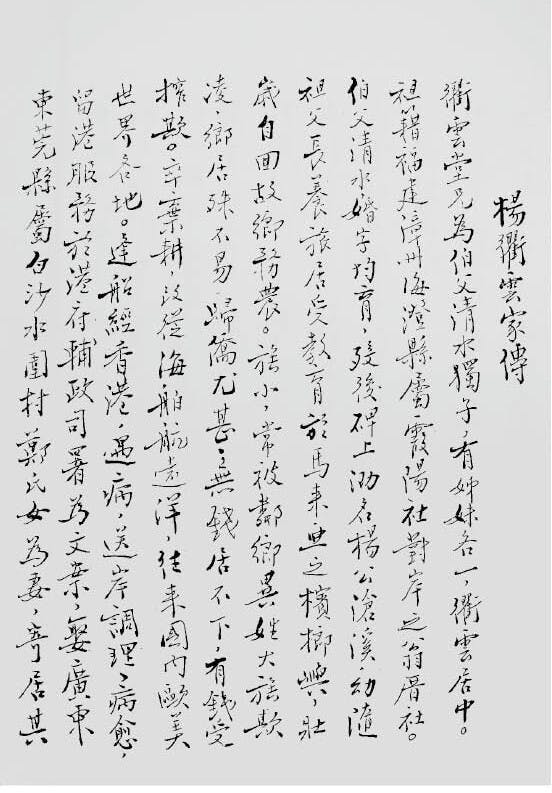 楊衢雲家傳
衢雲堂兄為伯父清水獨子，有姊妹各一，衢雲居中。
祖籍福建漳州海澄縣屬霞陽社對岸之翁厝社。
伯父清水，婚字均育，歿後碑上泐名楊公滄溪，幼隨
祖父長養旅居受教育於馬來亜之檳榔嶼，壯
歲自回故鄉務農。族小，常被鄰鄉異姓大族欺
凌，鄉居殊不易，歸僑尤甚，無錢居不下，有錢受
搾欺。卒棄耕，改從海舶航遠洋，往來國內歐美
世界各地。逢船經香港，遇病，送岸調理，病愈，
留港服務於港府輔政司署為文案，娶廣東
東莞縣屬白沙水圍村鄭氏女為妻，寄居其